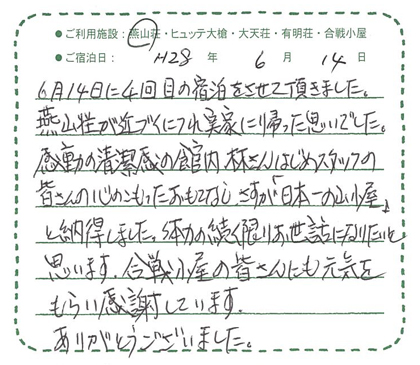 ●ご利用施設：燕山荘・ヒュッテ大槍・大天荘・有明荘・合戦小屋
●ご宿泊日： H28 年 6 月 14 日
6月14日に4回目の宿泊をさせて頂きました。
燕山荘が近づくにつれ実家に帰った思いでした。
感動の清潔感の館内 林さんはじめスタッフの
皆さんの心のこもったおもてなし さすが「日本一の山小屋」
と納得しました。体力の続く限りお世話になりたいと
思います。合戦小屋の皆さんにも元気を
もらい感謝しています。
ありがとうございました。